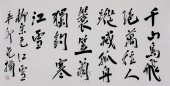 千山鳥飛
絕萬徑人
蹤滅孤舟
蓑笠翁
獨釣寒
江雪
柳宗元江雪